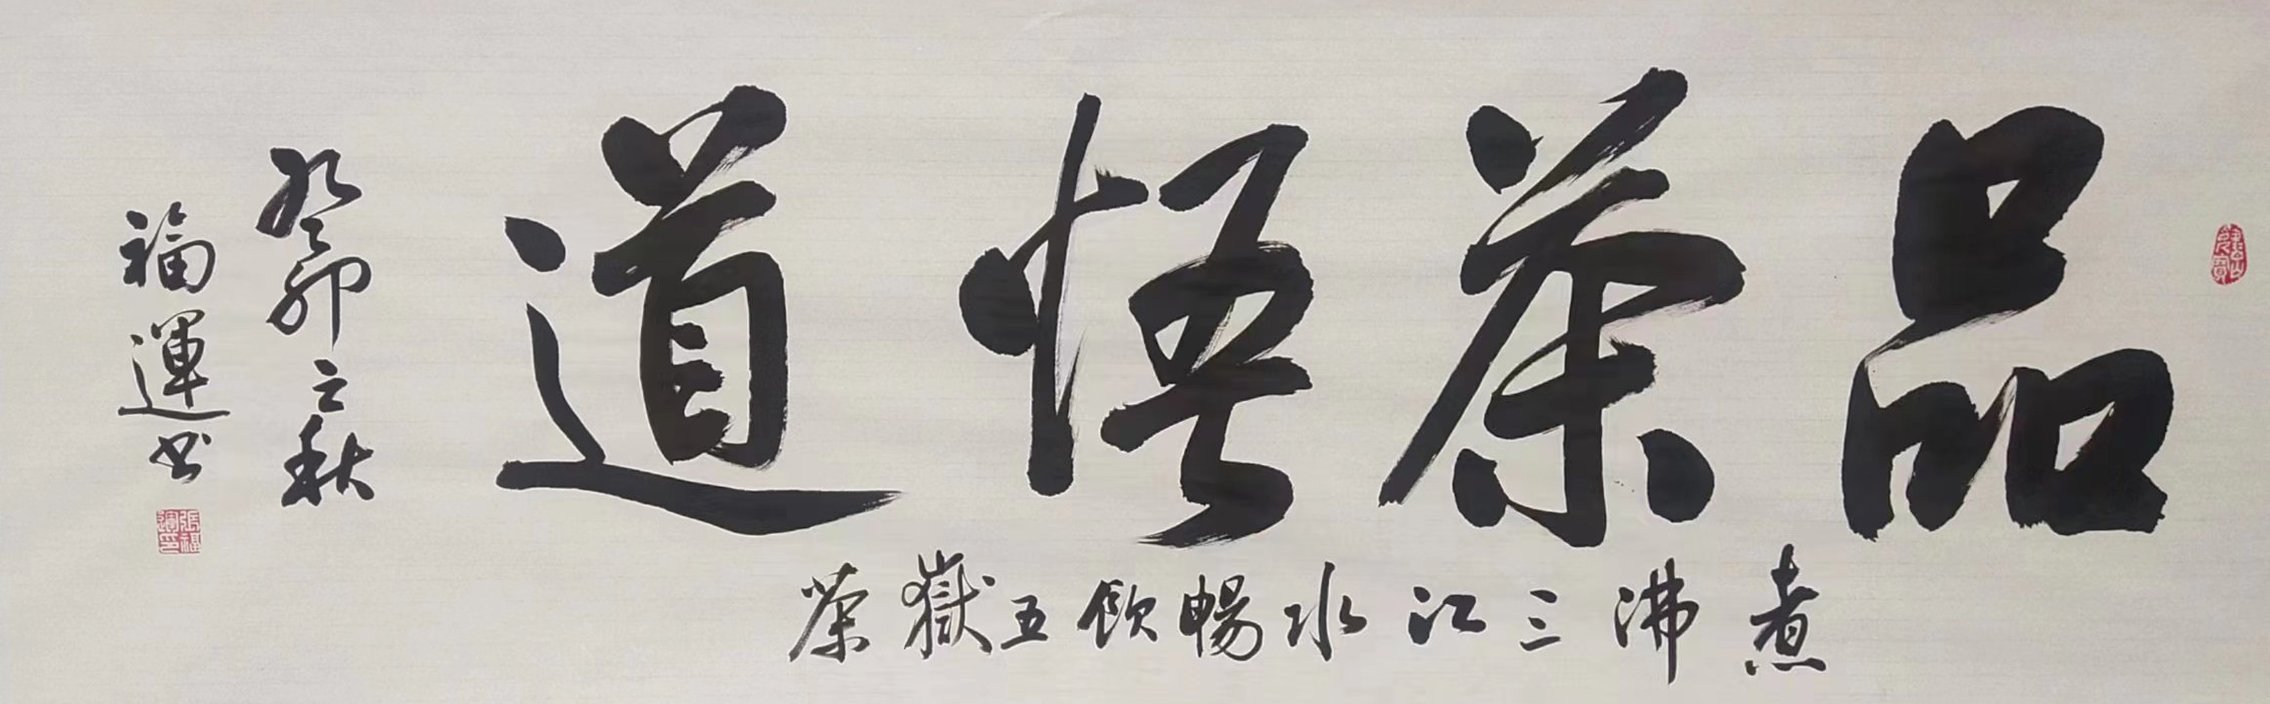 品茶悟道
煮沸三江水暢飲五嶽茶
癸卯之秋
福運书
張福運印